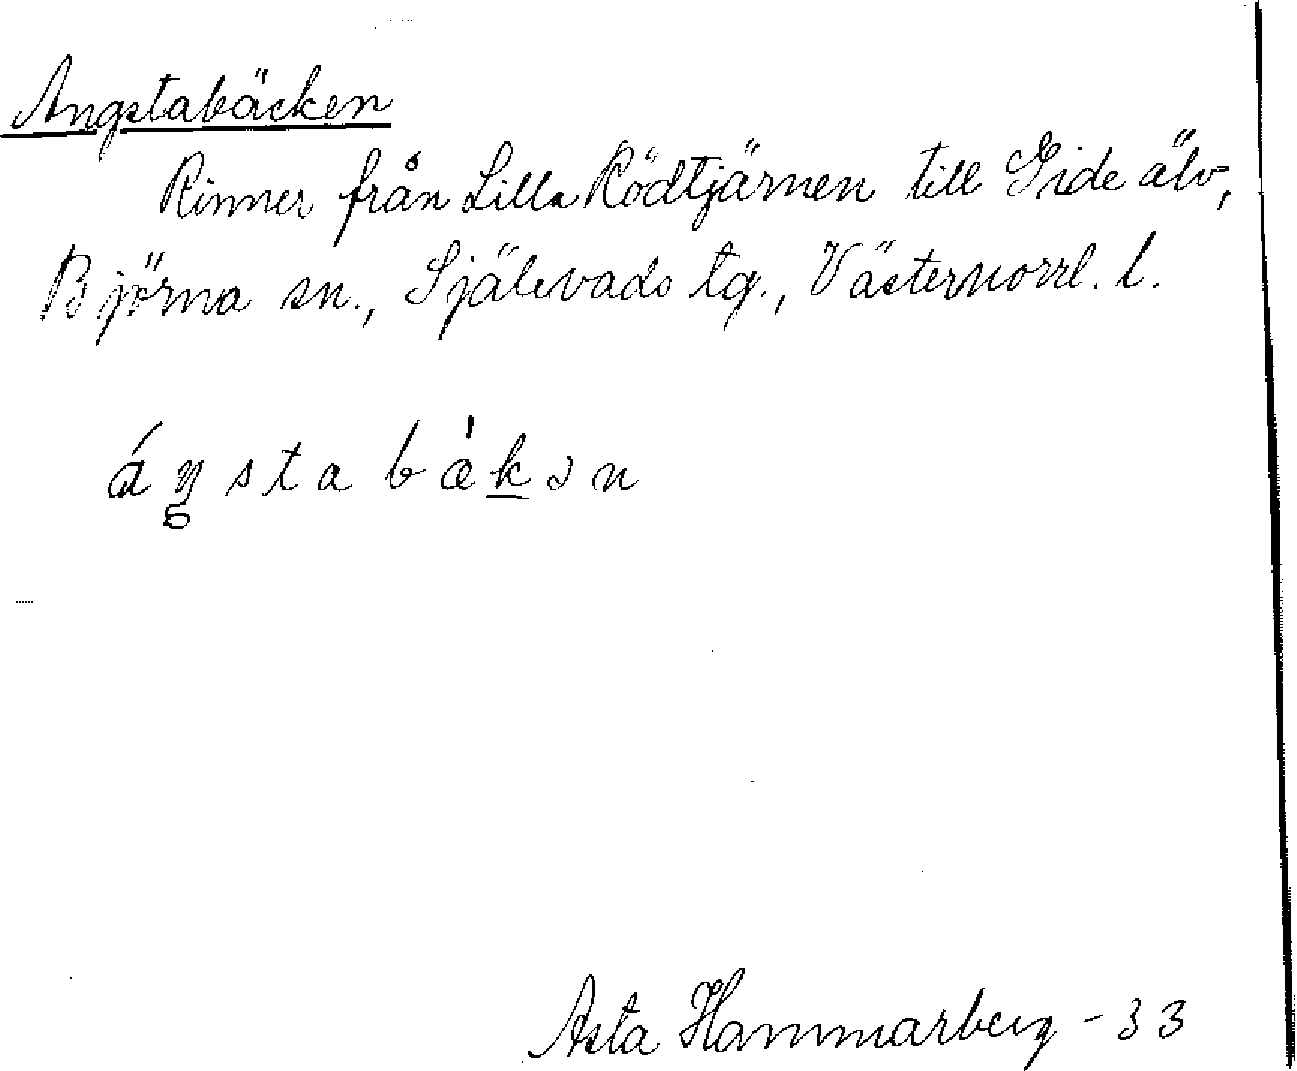 Angstabäcken
Rinner från Lilla Rödtjärnen till Gide älv,
Björna sn., Själevads tg., Västernorrl. l.
áŋstabæ̀kən
Asta Hammarberg - 33